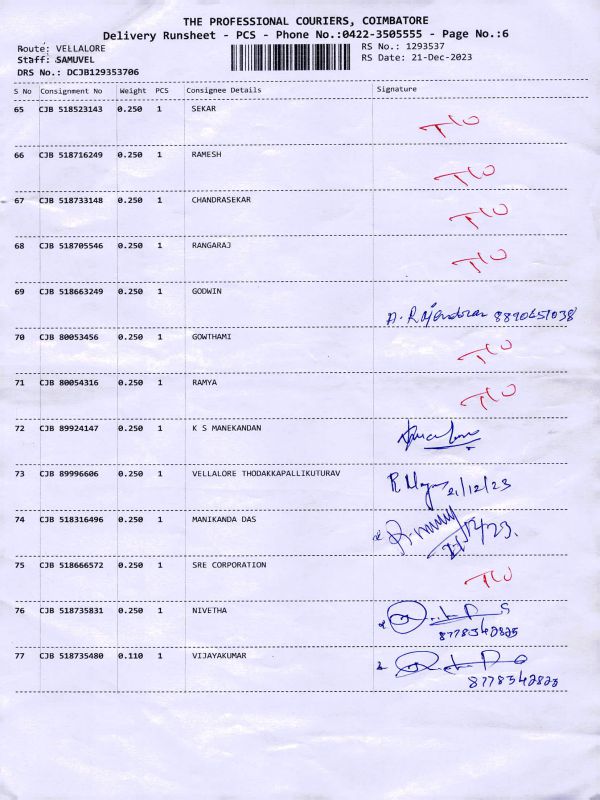 THE PROFESSIONAL COURIERS, COIMBATORE
Delivery Runsheet - PCS - Phone No.:0422-3505555 - Page No.:6
Route: VELLALORE
RS No.: 1293537
Staff: SAMUVEL
RS Date: 21-Dec-2023
DRS No.: DCJB129353706
S No Consignment No Weight PCS Consignee Details Signature
65 CJB 518523143 0.250 1 SEKAR
66 CJB 518716249 0.250 1 RAMESH
67 CJB 518733148 0.250 1 CHANDRASEKAR
68 CJB 518705546 0.250 1 RANGARAJ
69 CJB 518663249 0.250 1 GODWIN
A. Rajendran 8890651038
70 CJB 80053456 0.250 1 GOWTHAMI
71 CJB 80054316 0.250 1 RAMYA
72 CJB 89924147 0.250 1 K S MANEKANDAN
73 CJB 89996606 0.250 1 VELLALORE THODAKKAPALLIKUTURAV
21/12/23
74 CJB 518316496 0.250 1 MANIKANDA DAS
75 CJB 518666572 0.250 1 SRE CORPORATION
76 CJB 518735831 0.250 1 NIVETHA
77 CJB 518735480 0.110 1 VIJAYAKUMAR